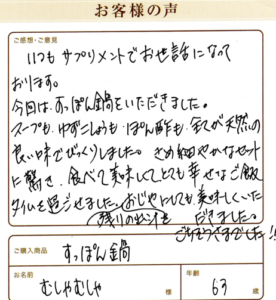 お客様の声
ご感想・ご意見
いつもサプリメントでお世話になって
おります。
今回は、すっぽん鍋をいただきました。
スープも、ゆずこしょうも、ぽん酢も、全てが天然の
良い味でびっくりしました。きめ細やかなセット
に驚き、食べて美味してとても幸せなご飯
タイムを過ごせました。おじやにしても、美味しくいた
残りの出汁を だきました。
ごちそうさまでした!!
ご購入商品 すっぽん鍋
お名前 むしゃむしゃ 様 年齢 63 歳